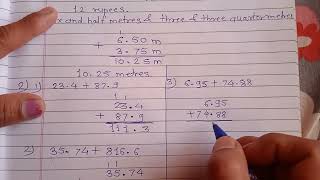 12 rupees.
x and half metres & three of three quarter metres
6.50 m
+ 3.75 m
10.25 m
10.25 metres.
2) 1) 23.4 + 87.9
1 1
23.4
+ 87.9
111.3
3) 6.95 + 74.88
6.95
+74.88
2) 35.74 + 816.6
1 1
35.74